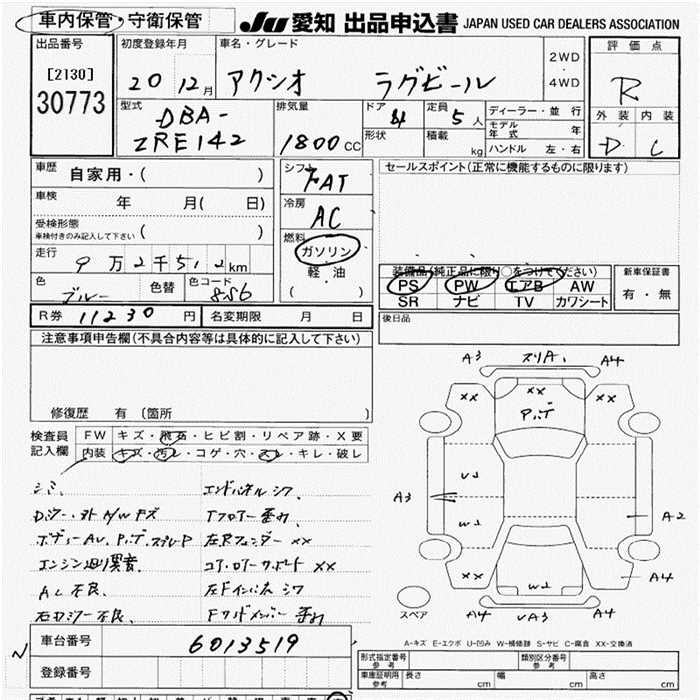 車内保管・守衛保管
JU 愛知 出品申込書 JAPAN USED CAR DEALERS ASSOCIATION
出品番号
[2130]
30773
初度登録年月
20 12月
車名・グレード
アクシオ ラグビール
2WD
・
4WD
評価点
R
外装 内装
D C
型式
DBA-
ZRE142
排気量
1800CC
ドア
4
定員
5人
形状
積載
kg
ディーラー・並行
モデル年式 年
ハンドル 左・右
車歴
自家用・( )
車検
年 月( 日)
受検形態
車検付きのみ記入して下さい ( )
走行
9万2千512km
色
ブルー
色替
色コード
8S6
シフト
FAT
冷房
AC
燃料
ガソリン
・
軽油
( )
セールスポイント(正常に機能するものに限ります)
装備品(純正品に限り○をつけてください)
PS PW エアB AW
SR ナビ TV カワシート
新車保証書
有・無
R券 11230円
名変期限 月 日
後日品
注意事項申告欄(不具合内容等は具体的に記入して下さい)
修復歴 有 (箇所
検査員
記入欄
FW キズ・飛石・ヒビ割・リペア跡・X要
内装 キズ・汚レ・コゲ・穴・スレ・キレ・破レ
シミ、
エンジン廻り異音、
AC不良
エンドパネルシワ
Tフロアー歪み
左Rフェンダー XX
左Fインパネシワ
A3
A4
XX
XX
XX
A4
A3
A2
XX
A4
A4
VA3
A4
スペア
A-キズ E-エクボ U-凹み W-補修跡 S-サビ C-腐食 XX-交換済
N
車台番号
6013519
登録番号
形式指定番号
参考
類別区分番号
参考
車庫証明用
参考
長さ cm
幅 cm
高さ cm